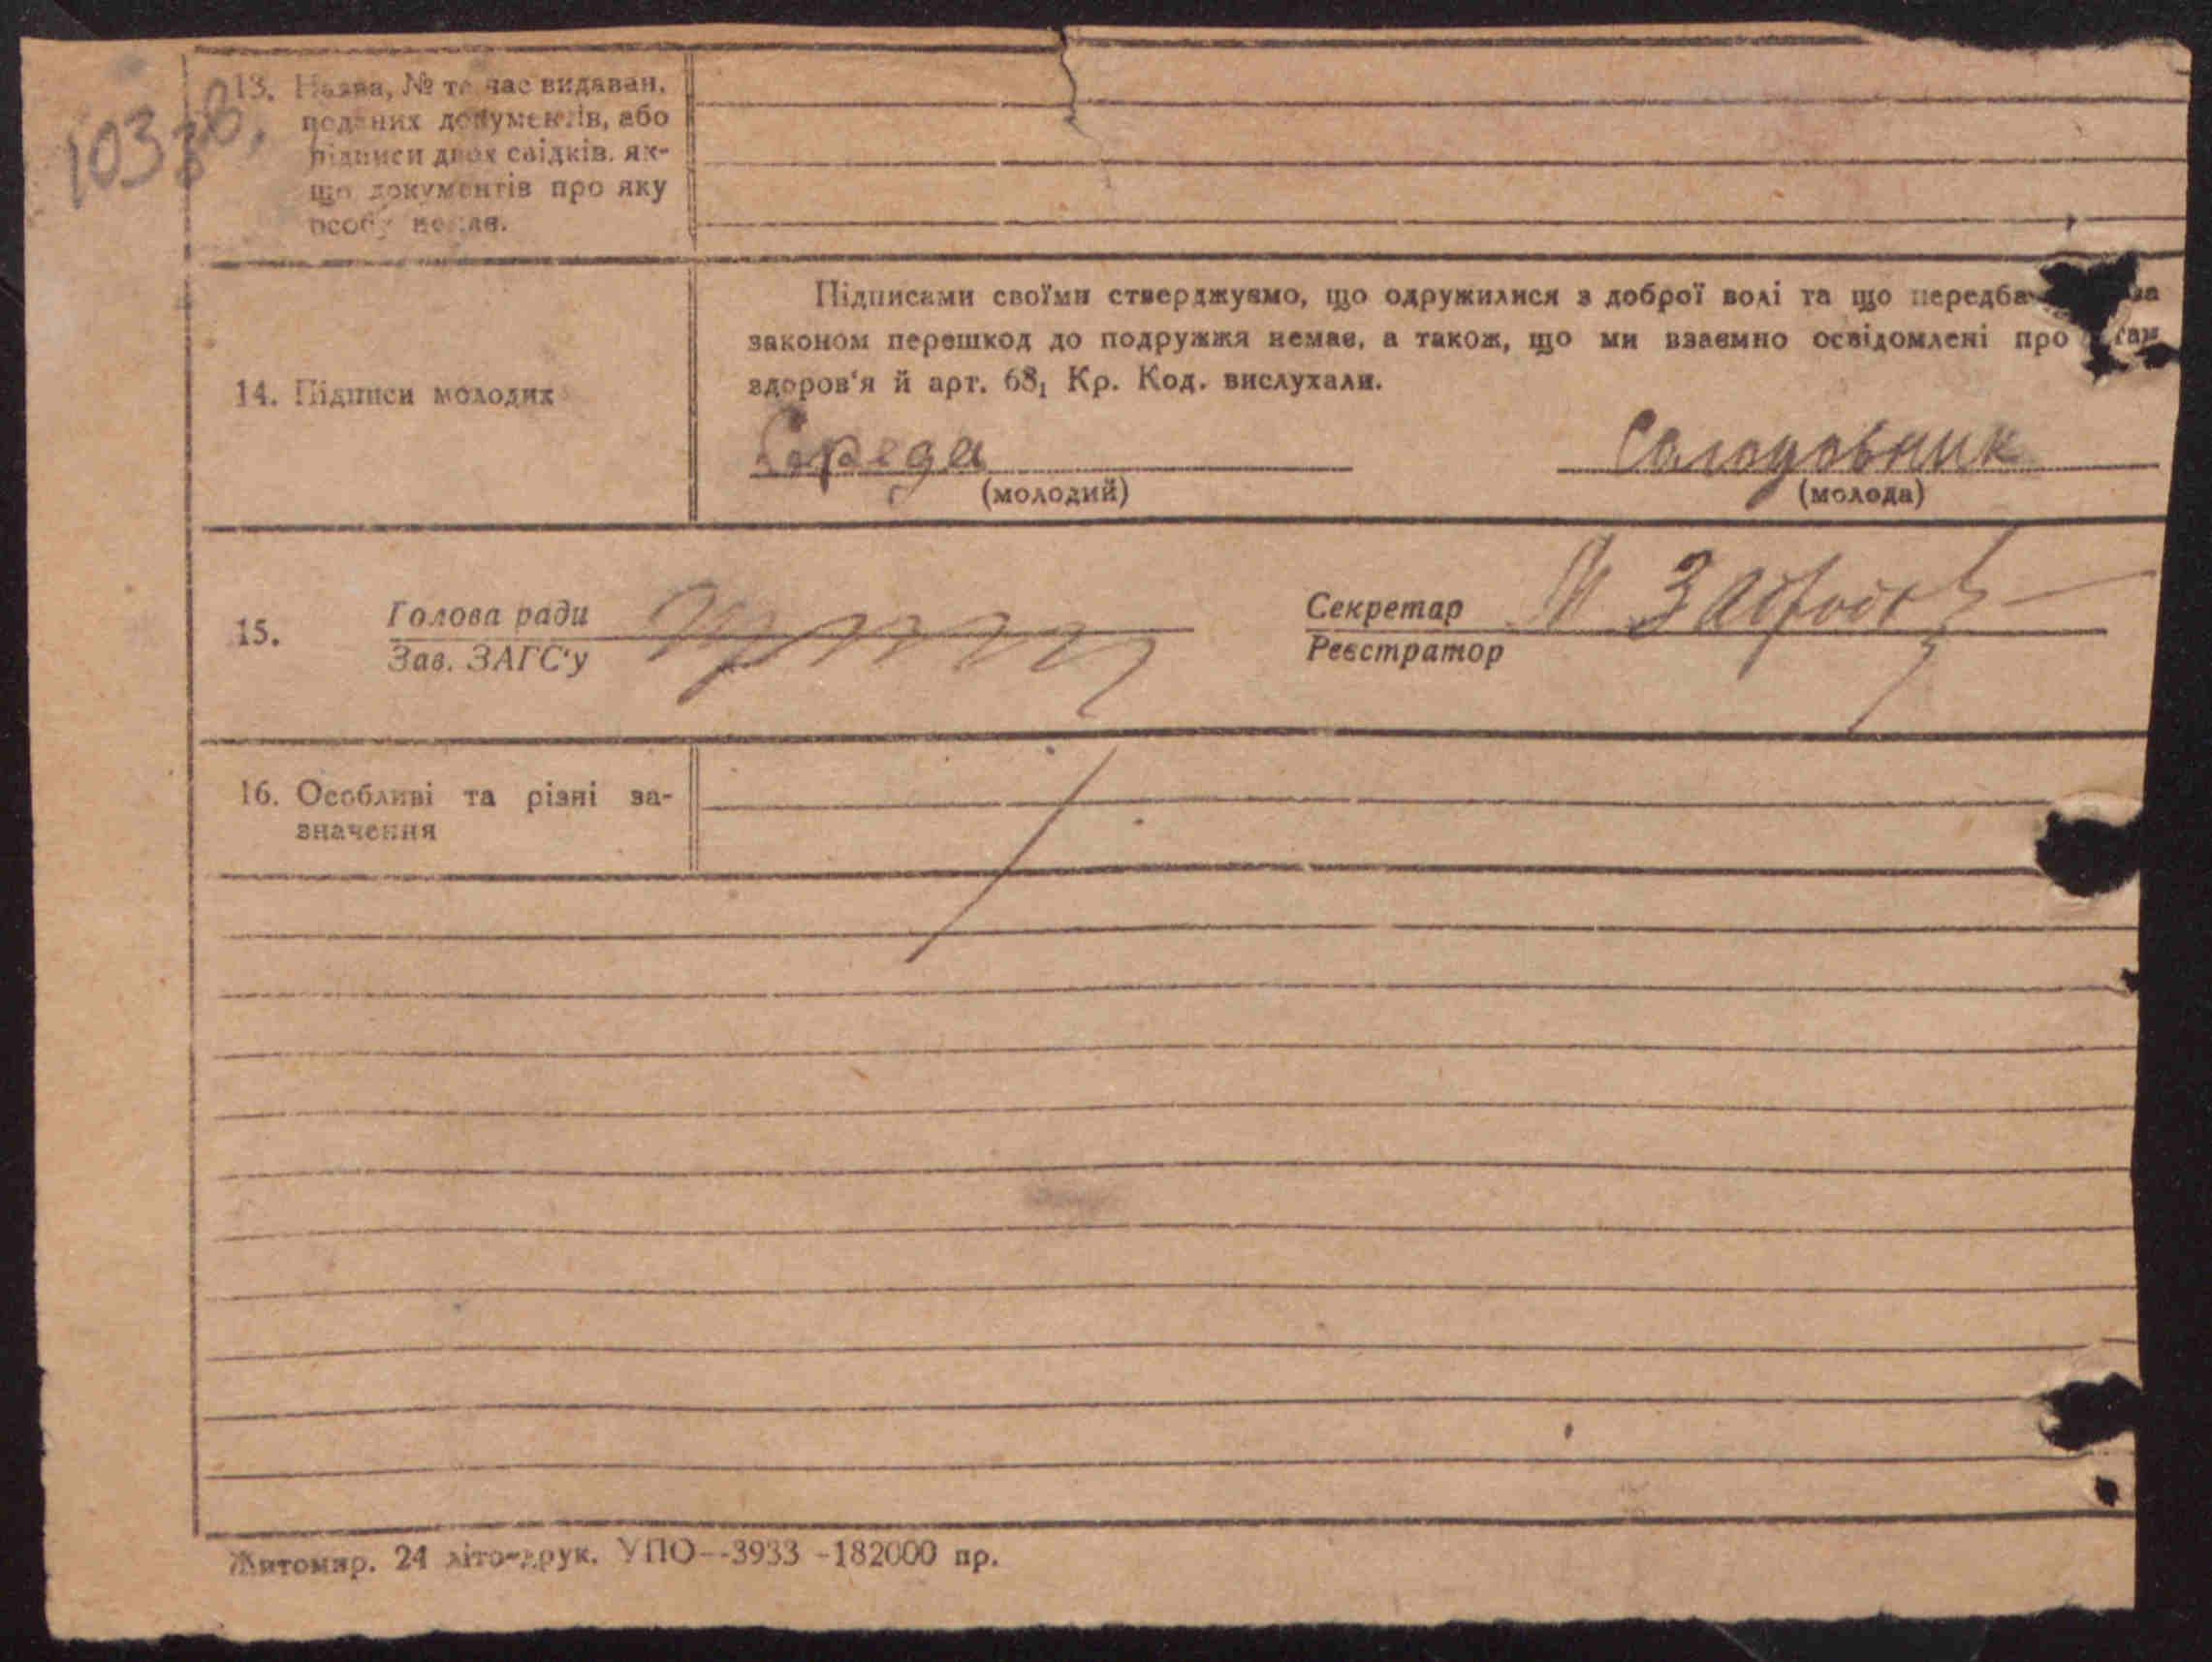 103 зв.
13. Назва, № та час видаван.
поданих документів, або
підписи двох свідків, як-
що документів про яку
особу немає.
Підписами своїми стверджуємо, що одружилися з доброї волі та що передба за
законом перешкод до подружжя немає, а також, що ми взаємно освідомлені про стан
здоров'я й арт. 68₁ Кр. Код. вислухали.
14. Підписи молодих
Середа Солодовник
(молодий) (молода)
15. Голова ради Секретар
Зав. ЗАГС'у Реєстратор
16. Особливі та різні за-
значення
Житомир. 24 літо-друк. УПО--3933 -182000 пр.